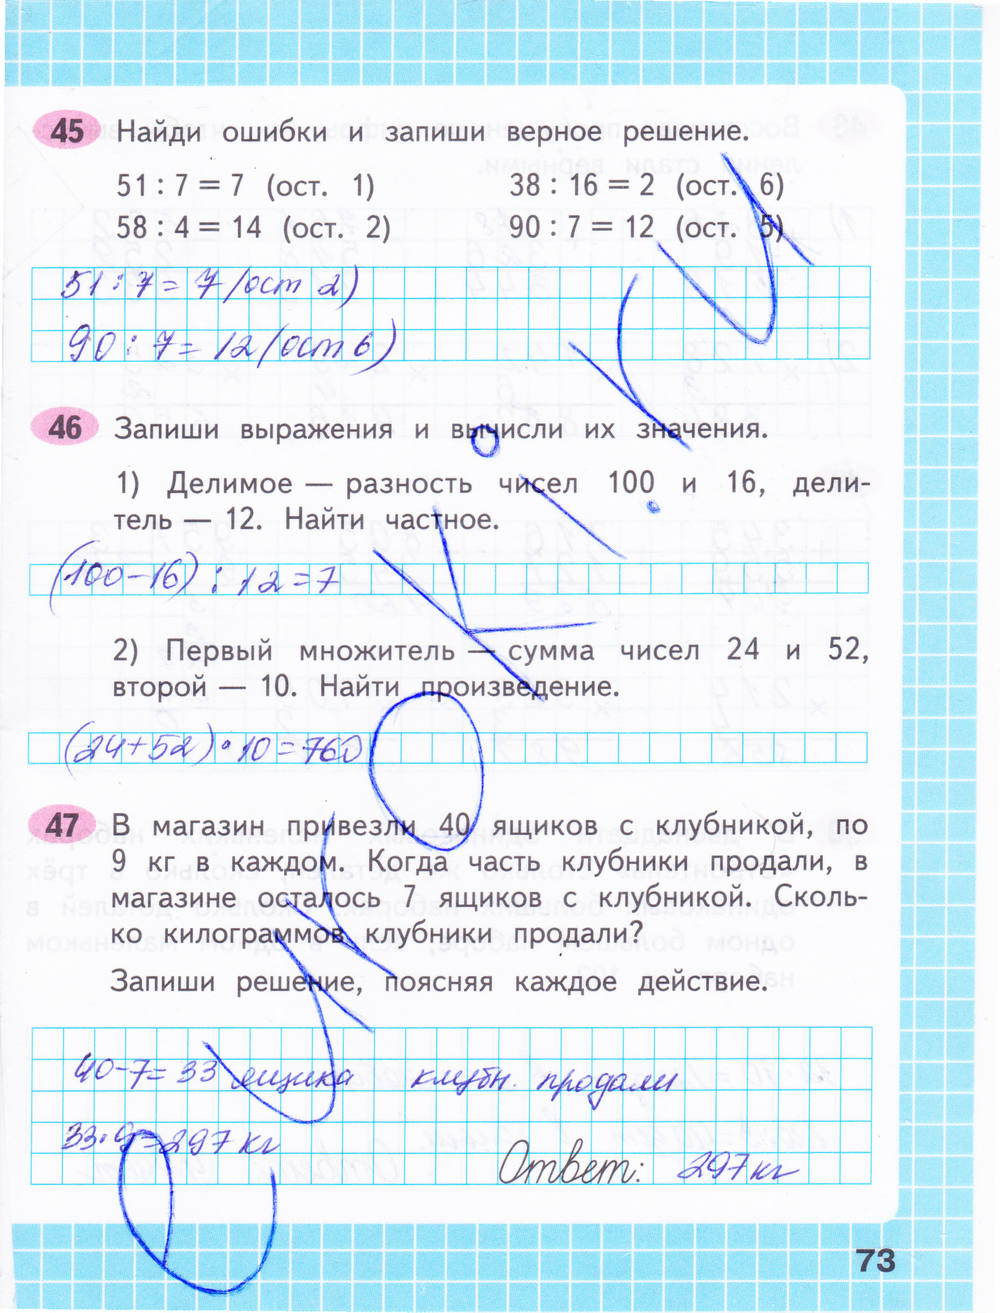 45 Найди ошибки и запиши верное решение.
51 : 7 = 7 (ост. 1) 38 : 16 = 2 (ост. 6)
58 : 4 = 14 (ост. 2) 90 : 7 = 12 (ост. 5)
51 : 7 = 7 (ост 2)
90 : 7 = 12 (ост 6)
46 Запиши выражения и вычисли их значения.
1) Делимое — разность чисел 100 и 16, дели-
тель — 12. Найти частное.
(100-16) : 12 = 7
2) Первый множитель — сумма чисел 24 и 52,
второй — 10. Найти произведение.
(24+52) · 10 = 760
47 В магазин привезли 40 ящиков с клубникой, по
9 кг в каждом. Когда часть клубники продали, в
магазине осталось 7 ящиков с клубникой. Сколь-
ко килограммов клубники продали?
Запиши решение, поясняя каждое действие.
40-7 = 33 ящика клубн. продали
33·9 = 297 кг
Ответ: 297 кг
73